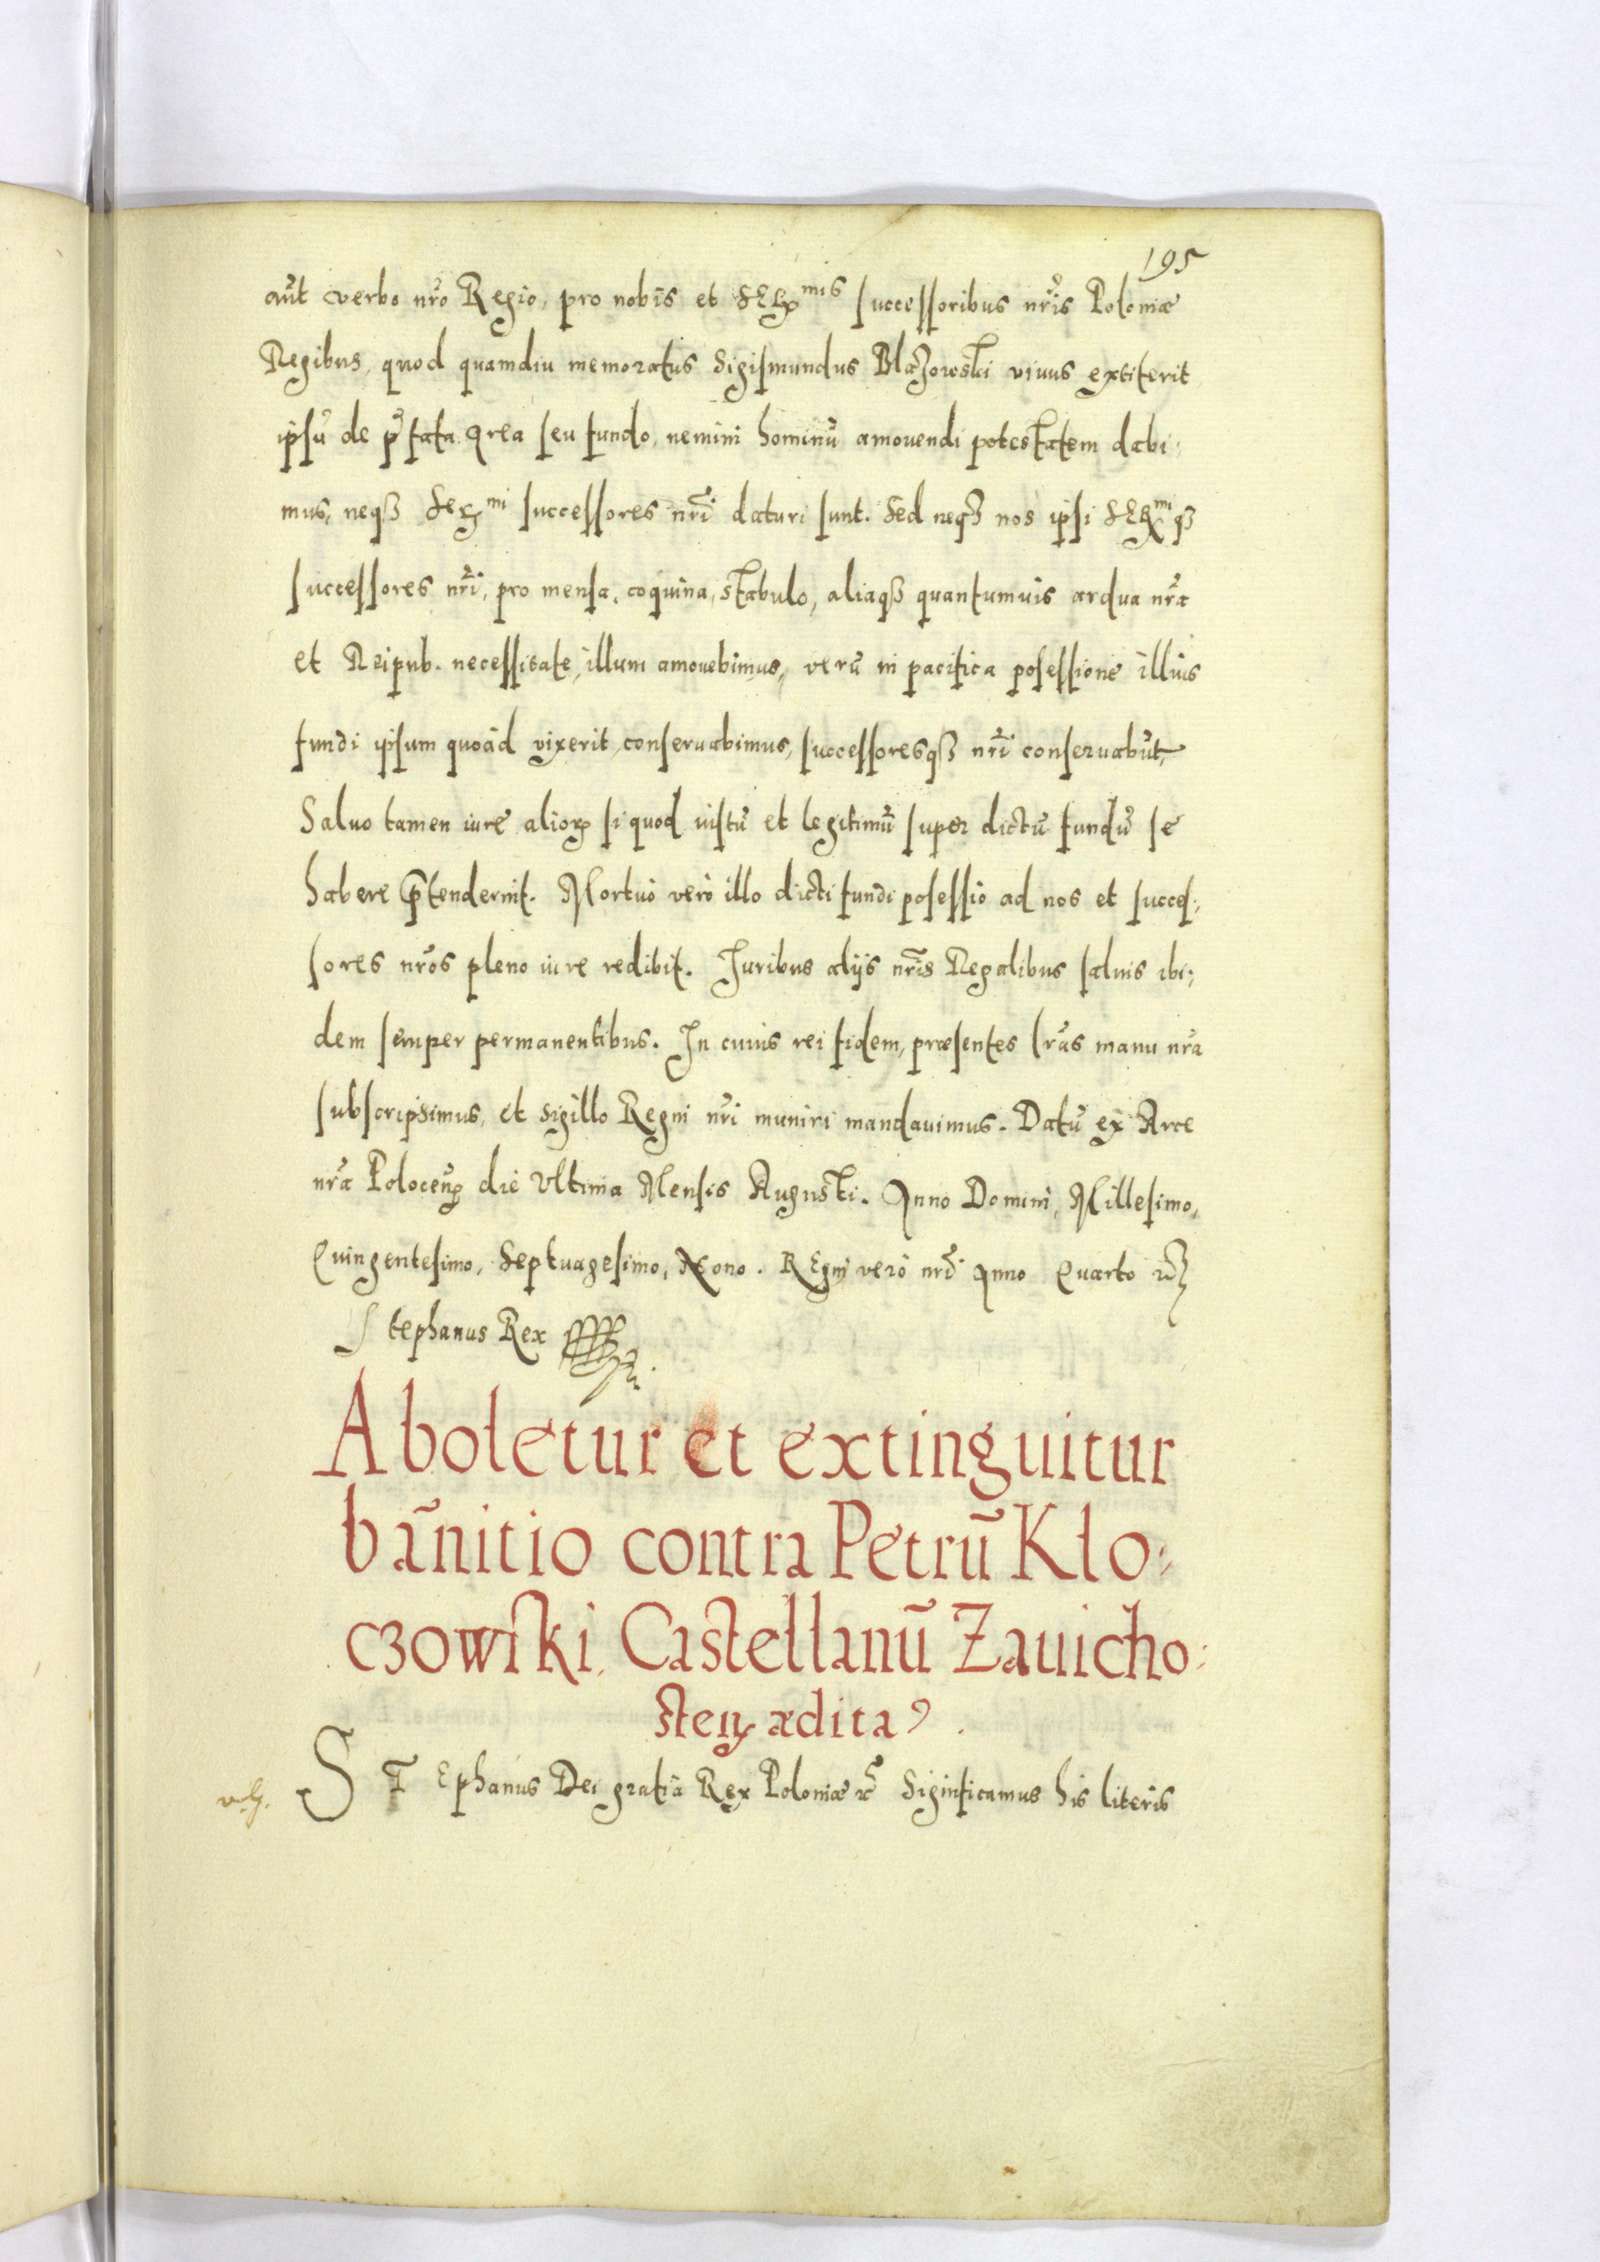 195
aūt verbo nr̃o Regio, pro nobis et SERmis successoribus nr̃is Poloniæ
Regibus, quod quamdiu memoratus Sigismundus Błażowski vivus extiterit
ipsū de p̃fata area seu fundo, nemini hominū amovendi potestatem dabi:
mus, neqꝫ Sermi successores nr̃i daturi sunt. Sed neqꝫ nos ipsi SERmiqꝫ
successores nr̃i, pro mensa, coquina, stabulo, aliaqꝫ quantumvis ardua nr̃a
et Reipub. necessitate, illum amovebimus, verū in pacifica posessione illius
fundi ipsum quoad vixerit, conservabimus, successoresqꝫ nr̃i conservabūt,
Salvo tamen iure alioꝝ si quod iustū et legitimū super dictū fundū se
habere p̃tenderint. Mortuo vero illo dicti fundi posessio ad nos et succes:
sores nr̃os pleno iure redibit. Juribus alijs nr̃is Regalibus salvis ibi:
dem semper permanentibus. In cuius rei fidem, præsentes lr̃as manu nr̃a
subscripsimus, et sigillo Regni nr̃i muniri mandavimus. Datū ex Arce
nr̃a Polocen̄ die Ultima Mensis Augusti. Anno Domini, Millesimo,
Quingentesimo, Septuagesimo, Nono. REgni vero nr̃i Anno Quarto ꝛc̃
Stephanus Rex
Aboletur et extinguitur
bānitio contra Petrū Kło:
czowski, Castellanū Zavicho:
sten̄ ædita
STEphanus Dei gratia Rex Poloniæ ꝛc̃ Significamus his literis